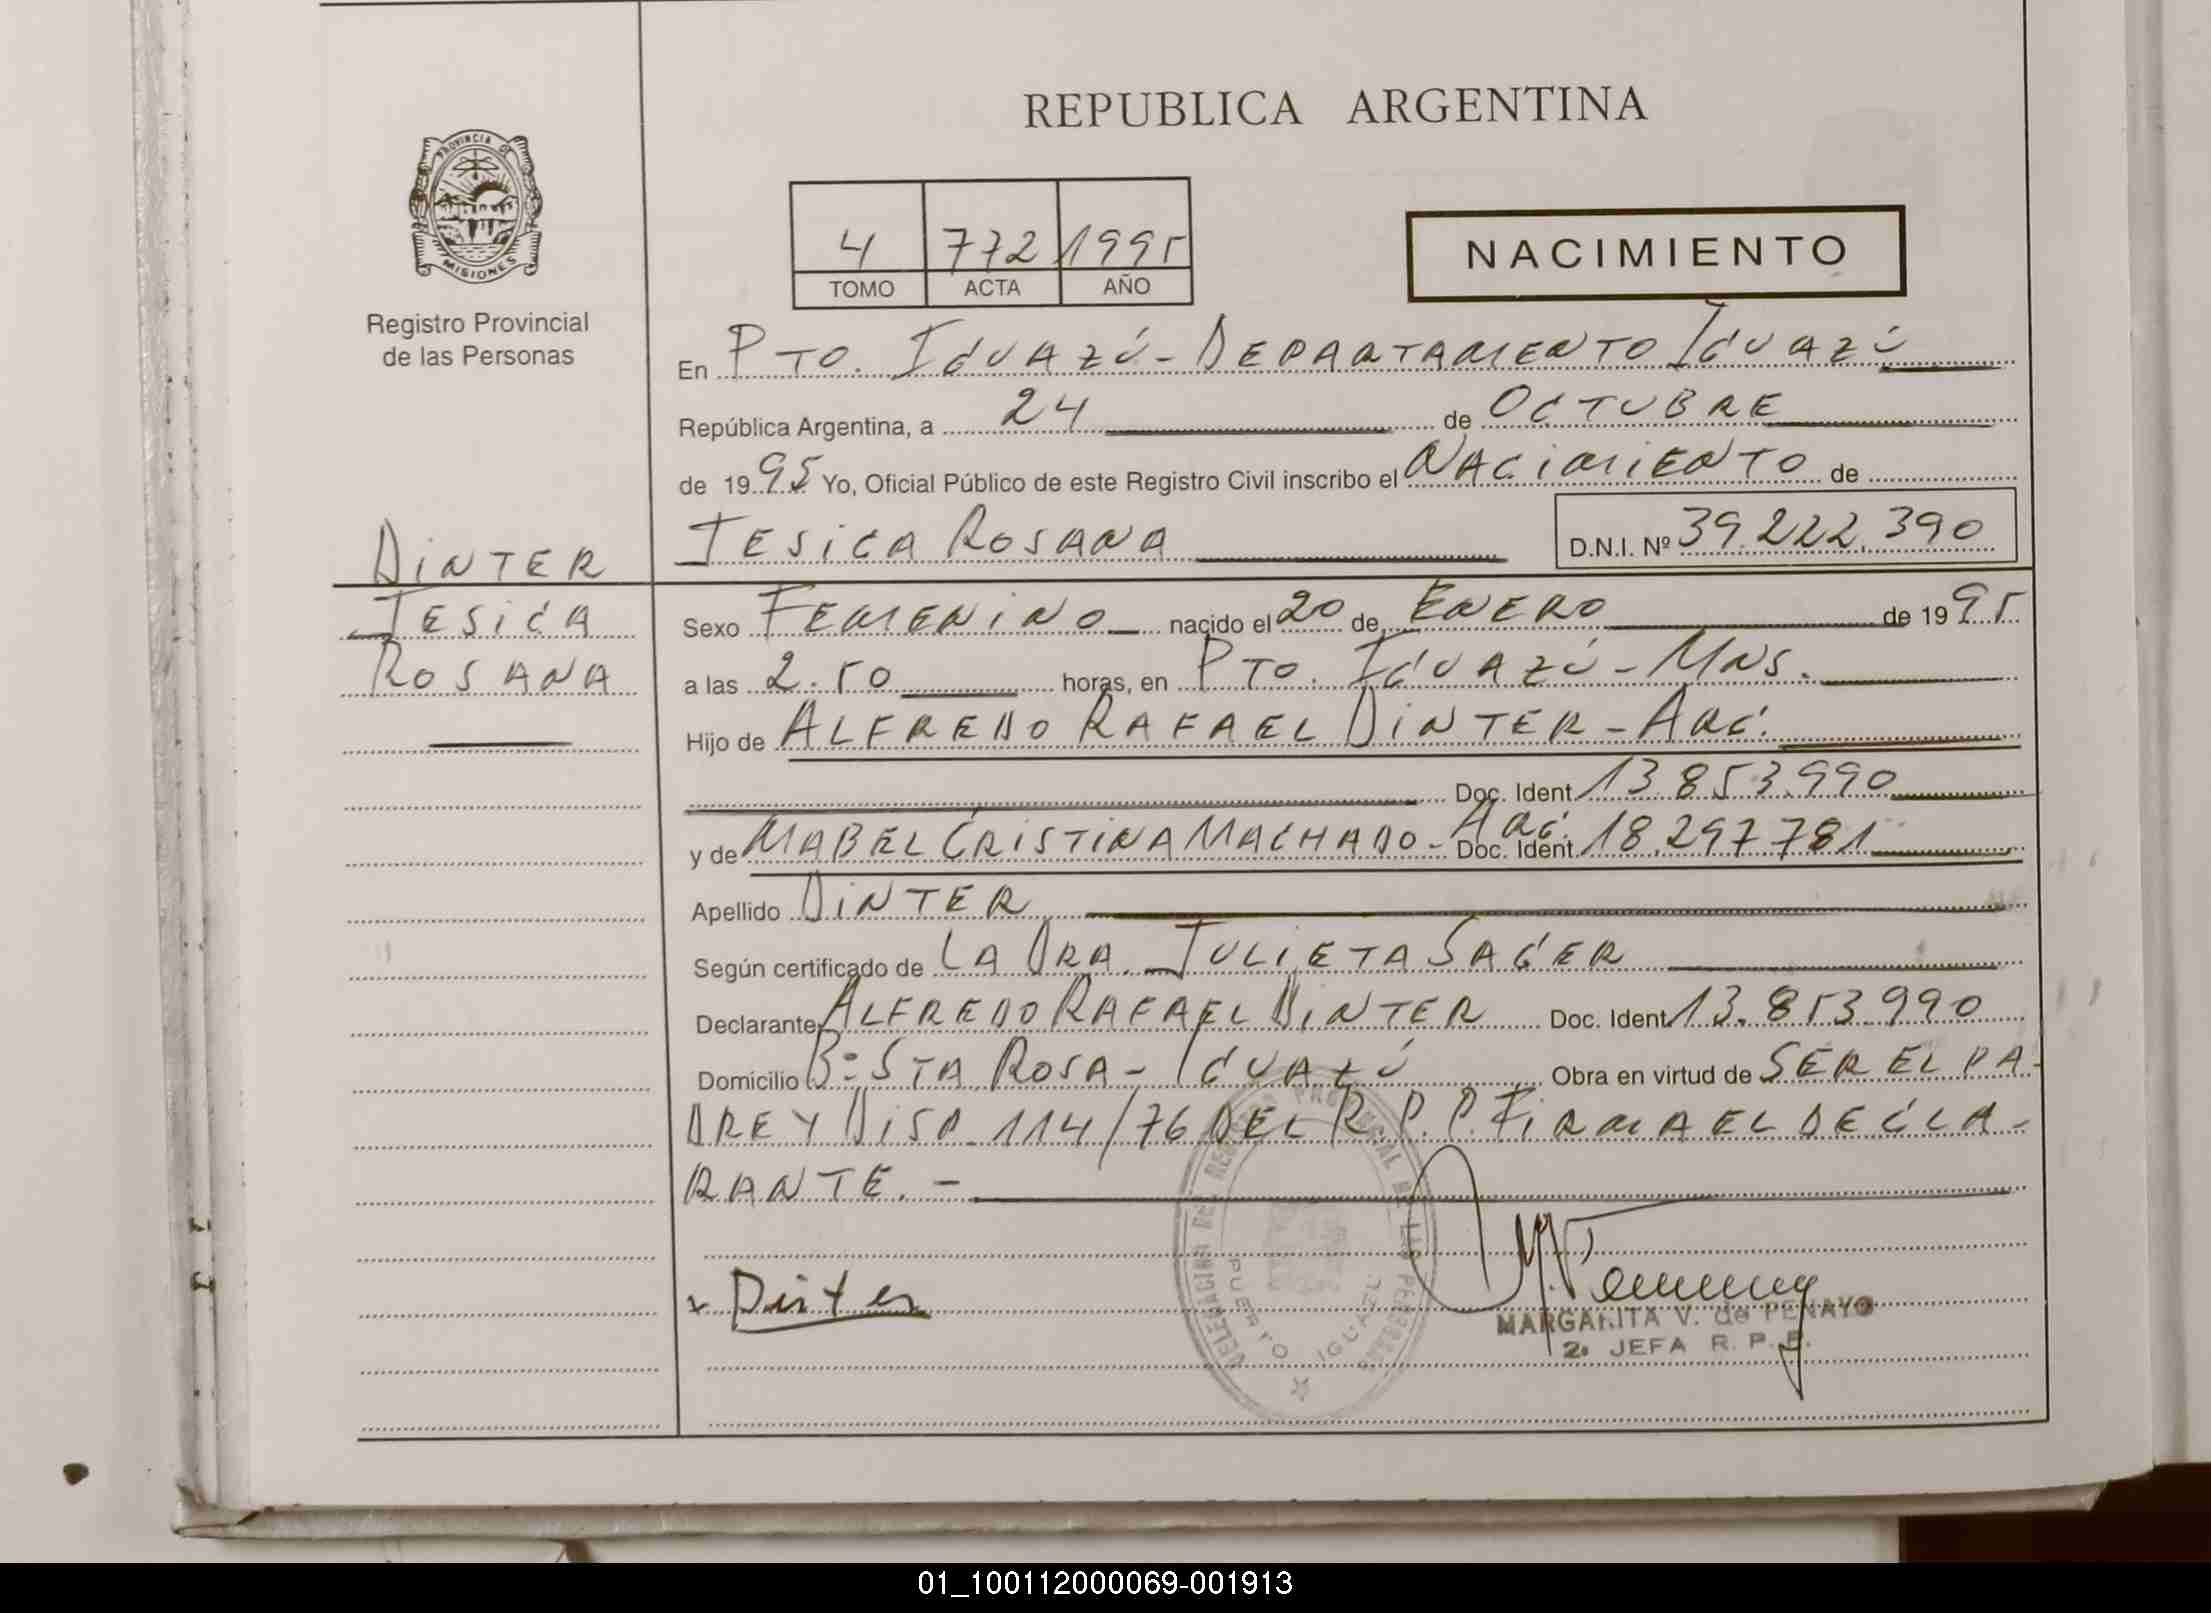 REPUBLICA ARGENTINA
PROVINCIA DE
MISIONES
Registro Provincial
de las Personas
4 772 1995
TOMO ACTA AÑO
NACIMIENTO
En PTO. IGUAZÚ - DEPARTAMENTO IGUAZÚ
República Argentina, a 24 de OCTUBRE
de 1995 Yo, Oficial Público de este Registro Civil inscribo el NACIMIENTO de
JESICA ROSANA D.N.I. Nº 39.222.390
DINTER
JESICA
ROSANA
Sexo FEMENINO nacido el 20 de ENERO de 1995
a las 2.50 horas, en PTO. IGUAZÚ - MNS.
Hijo de ALFREDO RAFAEL DINTER - ARG.
Doc. Ident 13.853.990
y de MABEL CRISTINA MACHADO - ARG. Doc. Ident. 18.297.781
Apellido DINTER
Según certificado de LA DRA. JULIETA SAGER
Declarante ALFREDO RAFAEL DINTER Doc. Ident. 13.853.990
Domicilio Bº STA ROSA - IGUAZÚ Obra en virtud de SER EL PA-
DRE Y DISP. 114/76 DEL R.P.P. FIRMA EL DECLA-
RANTE. -
x Dinter
DELEGACION DEL REGISTRO PROVINCIAL DE LAS PERSONAS
PUERTO IGUAZU
MARGARITA V. de PENAYO
2ª JEFA R. P. P.
01_100112000069-001913